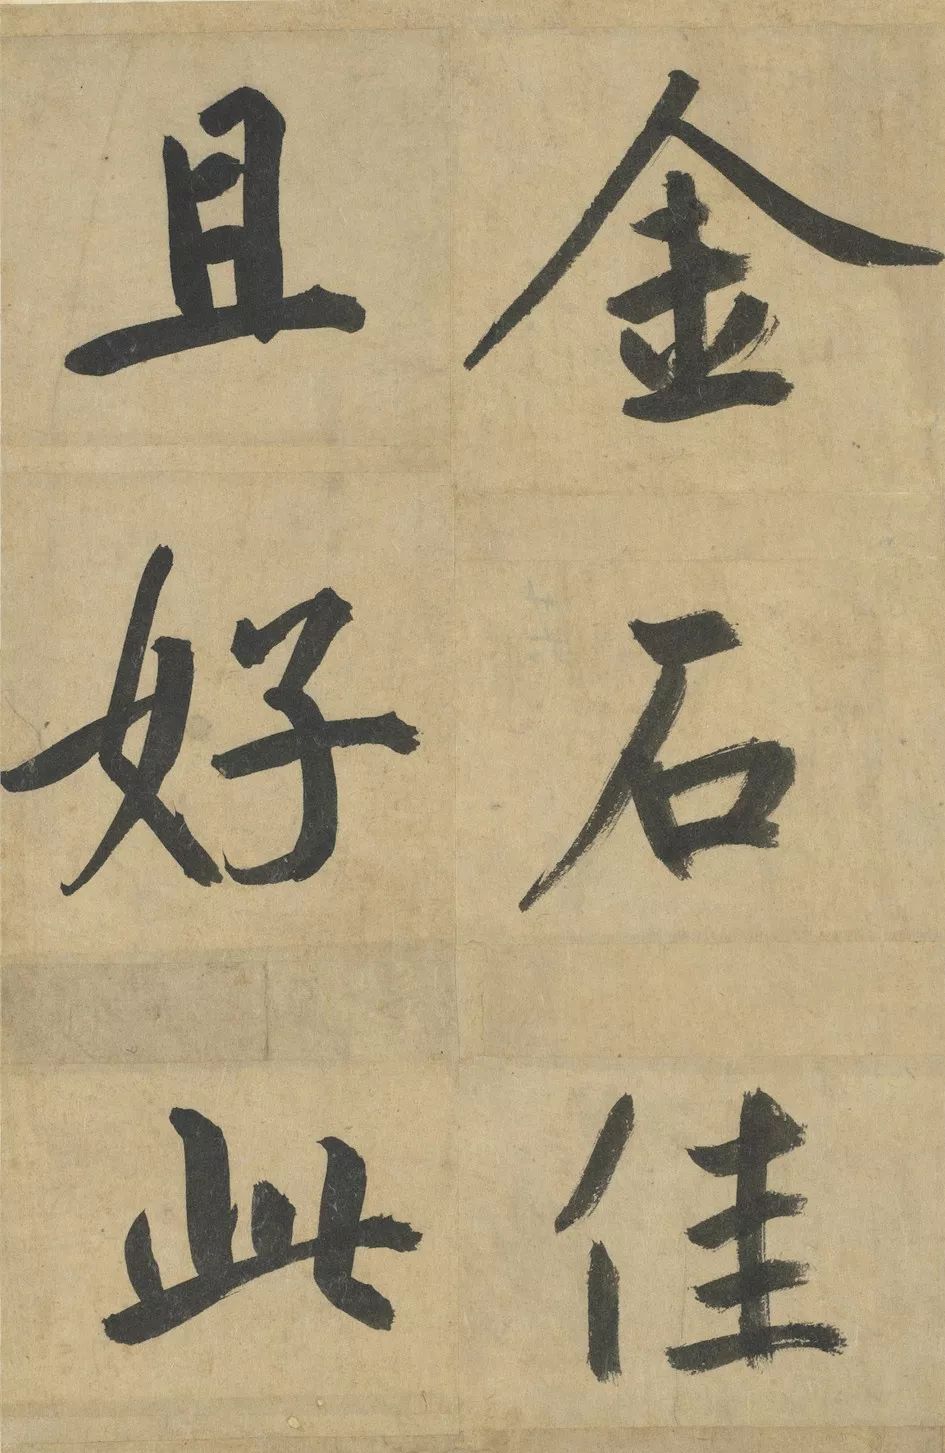 金石佳
且好此